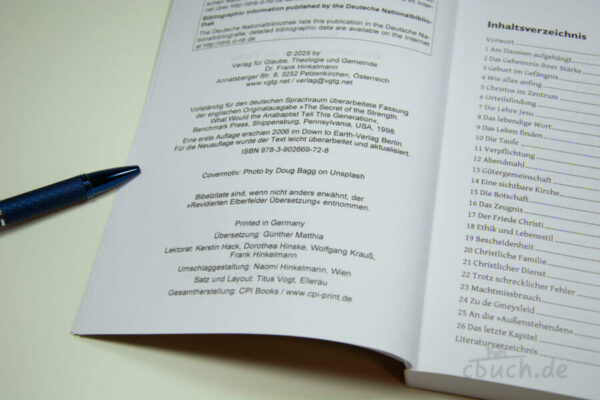 Bibliographic information published by the Deutsche Nationalbiblio-
thek
The Deutsche Nationalbibliothek lists this publication in the Deutsche Na-
tionalbibliografie; detailed bibliographic data are available on the Internet
at http://dnb.d-nb.de
© 2025 by
Verlag für Glaube, Theologie und Gemeinde
Dr. Frank Hinkelmann
Annatsberger Str. 8, 3252 Petzenkirchen, Österreich
www.vgtg.net / verlag@vgtg.net
Vollständig für den deutschen Sprachraum überarbeitete Fassung
der englischen Originalausgabe »The Secret of the Strength.
What Would the Anabaptist Tell This Generation«,
Benchmark Press. Shippensburg, Pennsylvania, USA, 1998.
Eine erste Auflage erschien 2006 im Down to Earth-Verlag Berlin.
Für die Neuauflage wurde der Text leicht überarbeitet und aktualisiert.
ISBN 978-3-902669-72-8
Covermotiv: Photo by Doug Bagg on Unsplash
Bibelzitate sind, wenn nicht anders erwähnt, der
»Revidierten Elberfelder Übersetzung« entnommen.
Printed in Germany
Übersetzung: Günther Matthia
Lektorat: Kerstin Hack, Dorothea Hinske, Wolfgang Krauß,
Frank Hinkelmann
Umschlaggestaltung: Naomi Hinkelmann, Wien
Satz und Layout: Titus Vogt, Ellerau
Gesamtherstellung: CPI Books / www.cpi-print.de
Inhaltsverzeichnis
Vorwort
1 Am Daumen aufgehängt
2 Das Geheimnis ihrer Stärke
3 Geburt im Gefängnis
4 Wie alles anfing
5 Christus im Zentrum
6 Urteilsfindung
7 Die Lehre Jesu
8 Das lebendige Wort
9 Das Leben finden
10 Die Taufe
11 Verpflichtung
12 Abendmahl
13 Gütergemeinschaft
14 Eine sichtbare Kirche
15 Die Botschaft
16 Das Zeugnis
17 Der Friede Christi
18 Ethik und Lebensstil
19 Bescheidenheit
20 Christliche Familie
21 Christlicher Dienst
22 Trotz schrecklicher Fehler
23 Machtmissbrauch
24 Zu de Gmeysleid
25 An die »Außenstehenden«
26 Das letzte Kapitel
Literaturverzeichnis
cbuch.de